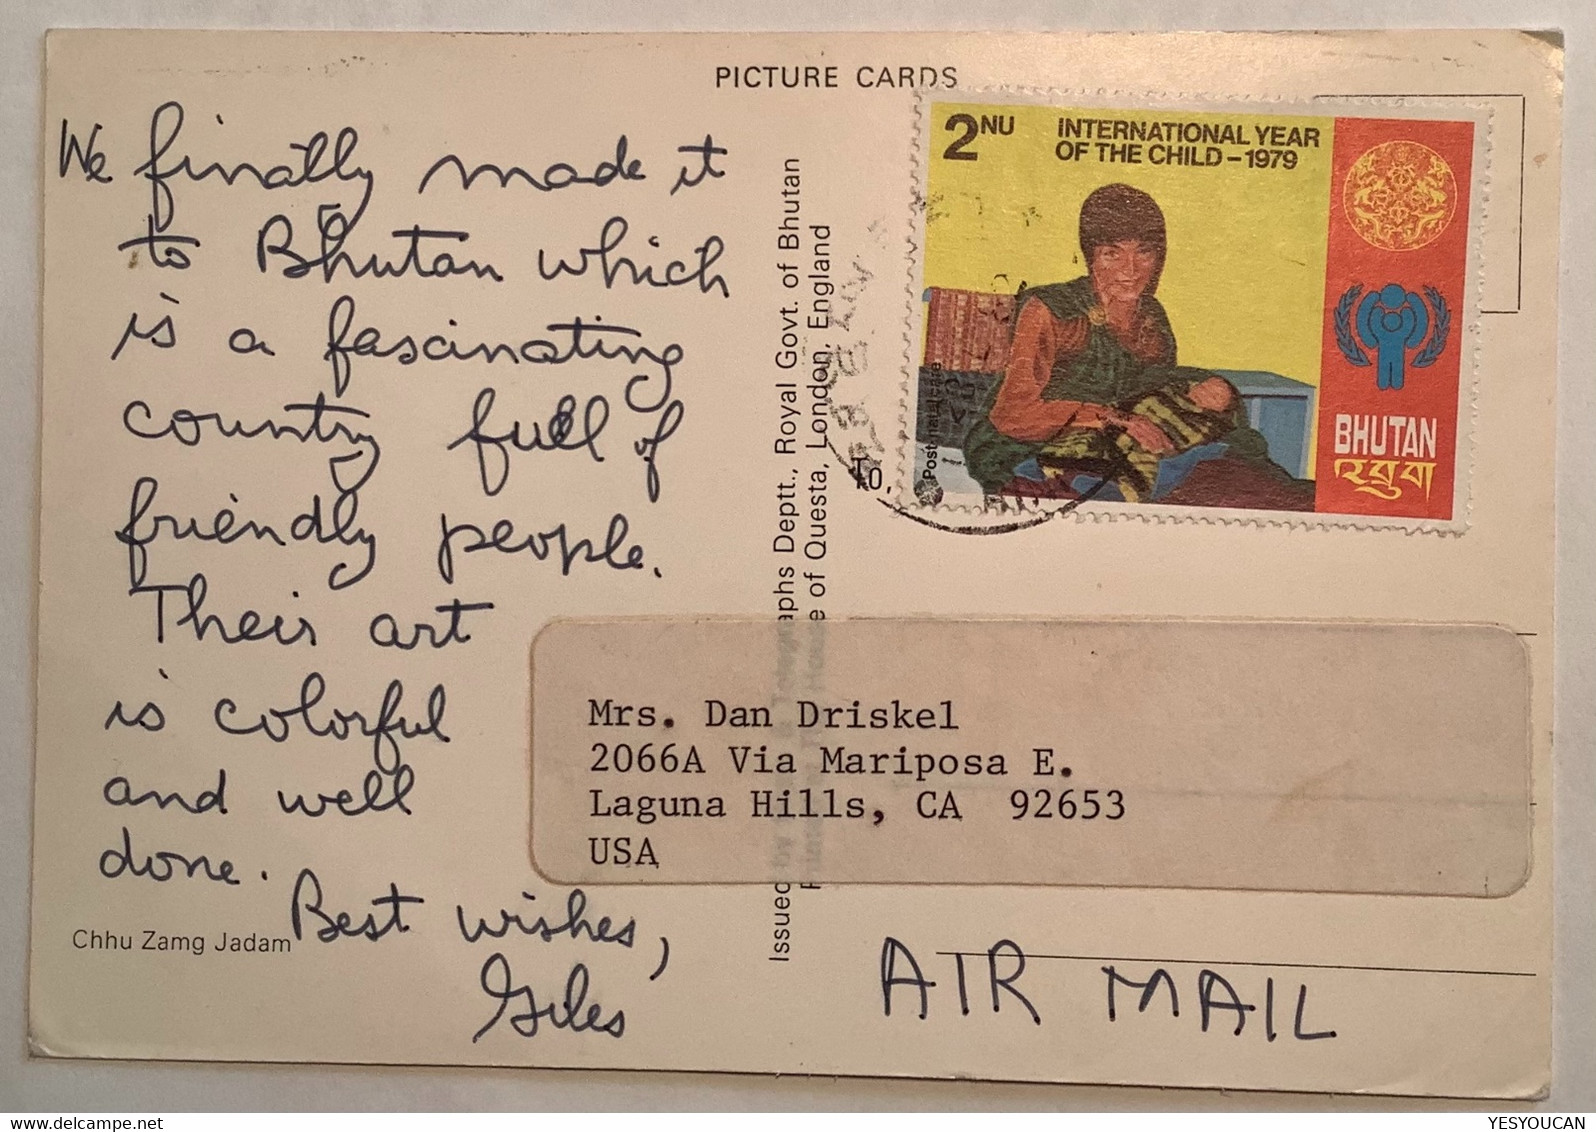 PICTURE CARDS
We finally made it
to Bhutan which
is a fascinating
country full of
friendly people.
Their art
is colorful
and well
done.
Best wishes,
Giles
Chhu Zamg Jadam
Issued by Telegraphs Deptt., Royal Govt. of Bhutan
House of Questa, London, England
2NU
INTERNATIONAL YEAR
OF THE CHILD – 1979
Post-natal care
BHUTAN
འབྲུག
To,
Mrs. Dan Driskel
2066A Via Mariposa E.
Laguna Hills, CA 92653
USA
AIR MAIL
YESYOUCAN